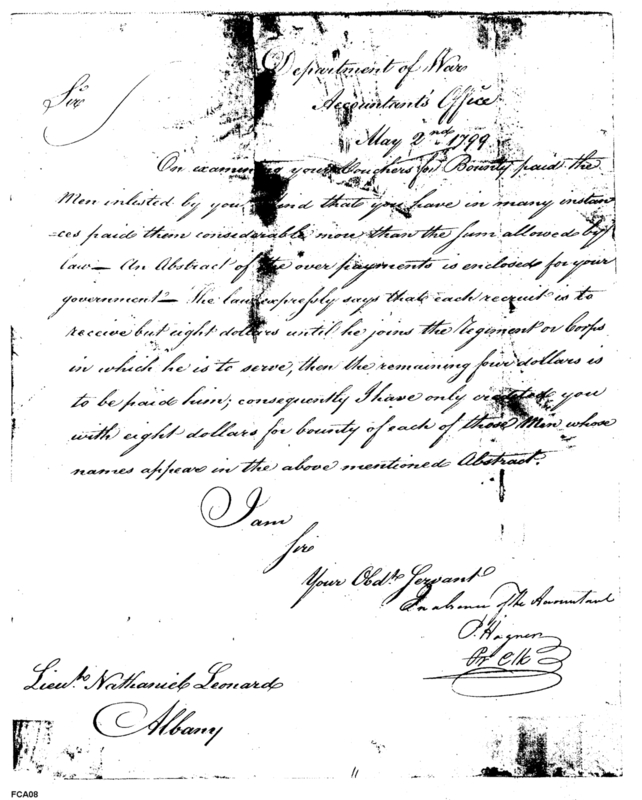 Department of War
Accountant's Office
May 2nd 1799
Sir
On examining your Vouchers for Bounty paid the
Men enlisted by you I find that you have in many instan
-ces paid them considerable more than the sum allowed by
law — An Abstract of the over payments is enclosed for your
government — The law expressly says that each recruit is to
receive but eight dollars until he joins the Regiment or Corps
in which he is to serve, then the remaining four dollars is
to be paid him; consequently I have only credited you
with eight dollars for bounty of each of those Men whose
names appear in the above mentioned Abstract.
I am
Sir
Your Obdt. Servant
In absence of the Accountant
P. Hagner
Pr Clk
Lieut. Nathaniel Leonard
Albany
FCA08